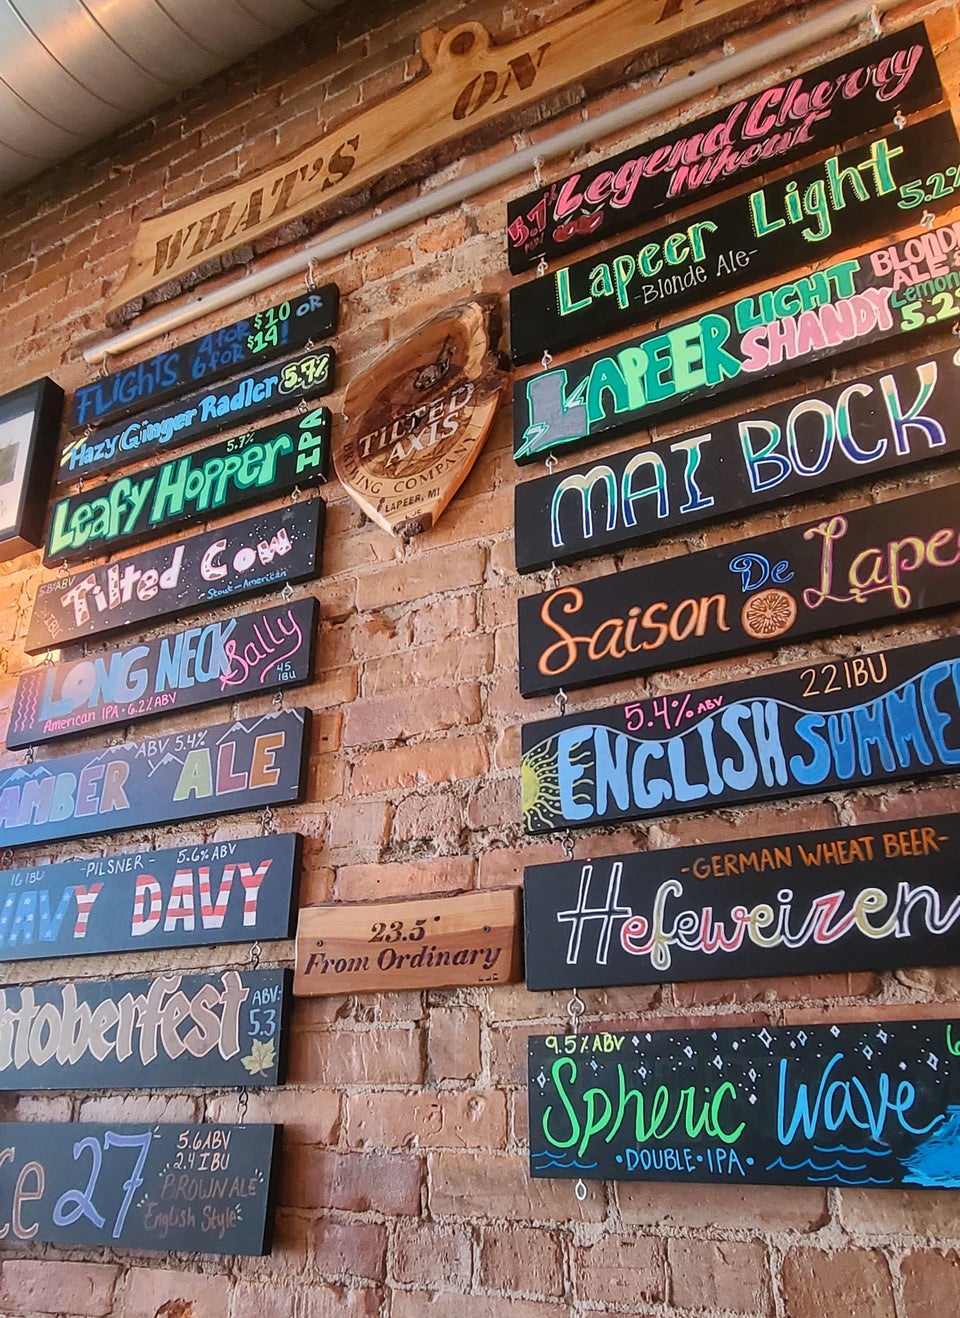 WHAT'S ON
FLIGHTS 4 FOR $10 OR
6 FOR $14!
Hazy Ginger Radler 5.7%
Leafy Hopper IPA
5.7%
5.8% ABV
Tilted Cow
IBU
Stout-American
LONG NECK Sally
American IPA • 6.2% ABV
45
IBU
ABV 5.4%
AMBER ALE
16 IBU -PILSNER- 5.6% ABV
AVY DAVY
ktoberfest ABV:
5.3
ce 27
5.6 ABV
2.4 IBU
BROWN ALE
English Style
TILTED
AXIS
ING COMPANY
LAPEER, MI
23.5°
From Ordinary
Legend Cherry
Wheat
5.7%
Lapeer Light
-Blonde Ale-
5.2%
LAPEER LIGHT
SHANDY
BLONDE
ALE &
Lemon
5.2
MAI BOCK
Saison De Lapee
5.4% ABV 22 IBU
ENGLISH SUMME
-GERMAN WHEAT BEER-
Hefeweizen
9.5% ABV
Spheric Wave
•DOUBLE•IPA•